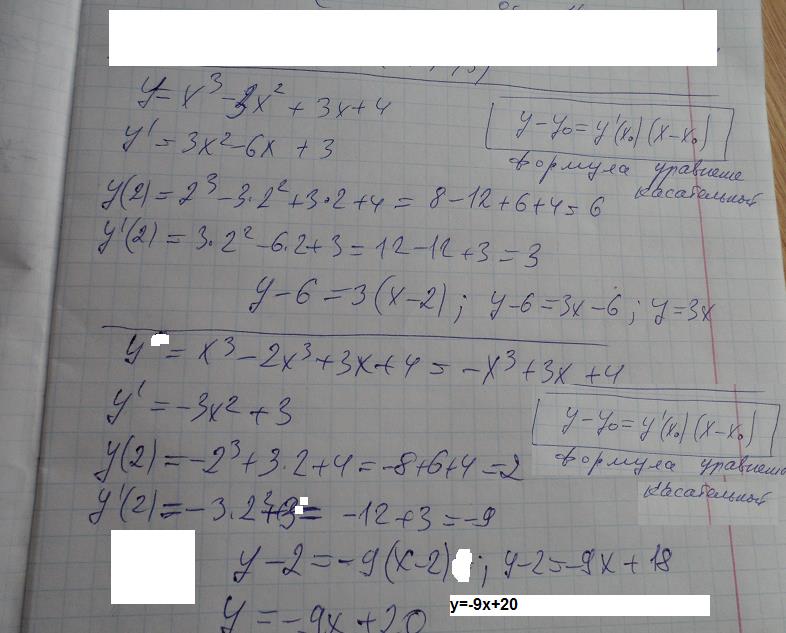 y = x³ - 3x² + 3x + 4
y' = 3x² - 6x + 3
y - y₀ = y'(x₀)(x - x₀)
формула уравнение
касательный
y(2) = 2³ - 3·2² + 3·2 + 4 = 8 - 12 + 6 + 4 = 6
y'(2) = 3·2² - 6·2 + 3 = 12 - 12 + 3 = 3
y - 6 = 3(x - 2); y - 6 = 3x - 6; y = 3x
y = x³ - 2x³ + 3x + 4 = -x³ + 3x + 4
y' = -3x² + 3
y - y₀ = y'(x₀)(x - x₀)
формула уравнение
касательный
y(2) = -2³ + 3·2 + 4 = -8 + 6 + 4 = 2
y'(2) = -3·2² + 3 = -12 + 3 = -9
y - 2 = -9(x - 2); y - 2 = -9x + 18
y = -9x + 20
y=-9x+20